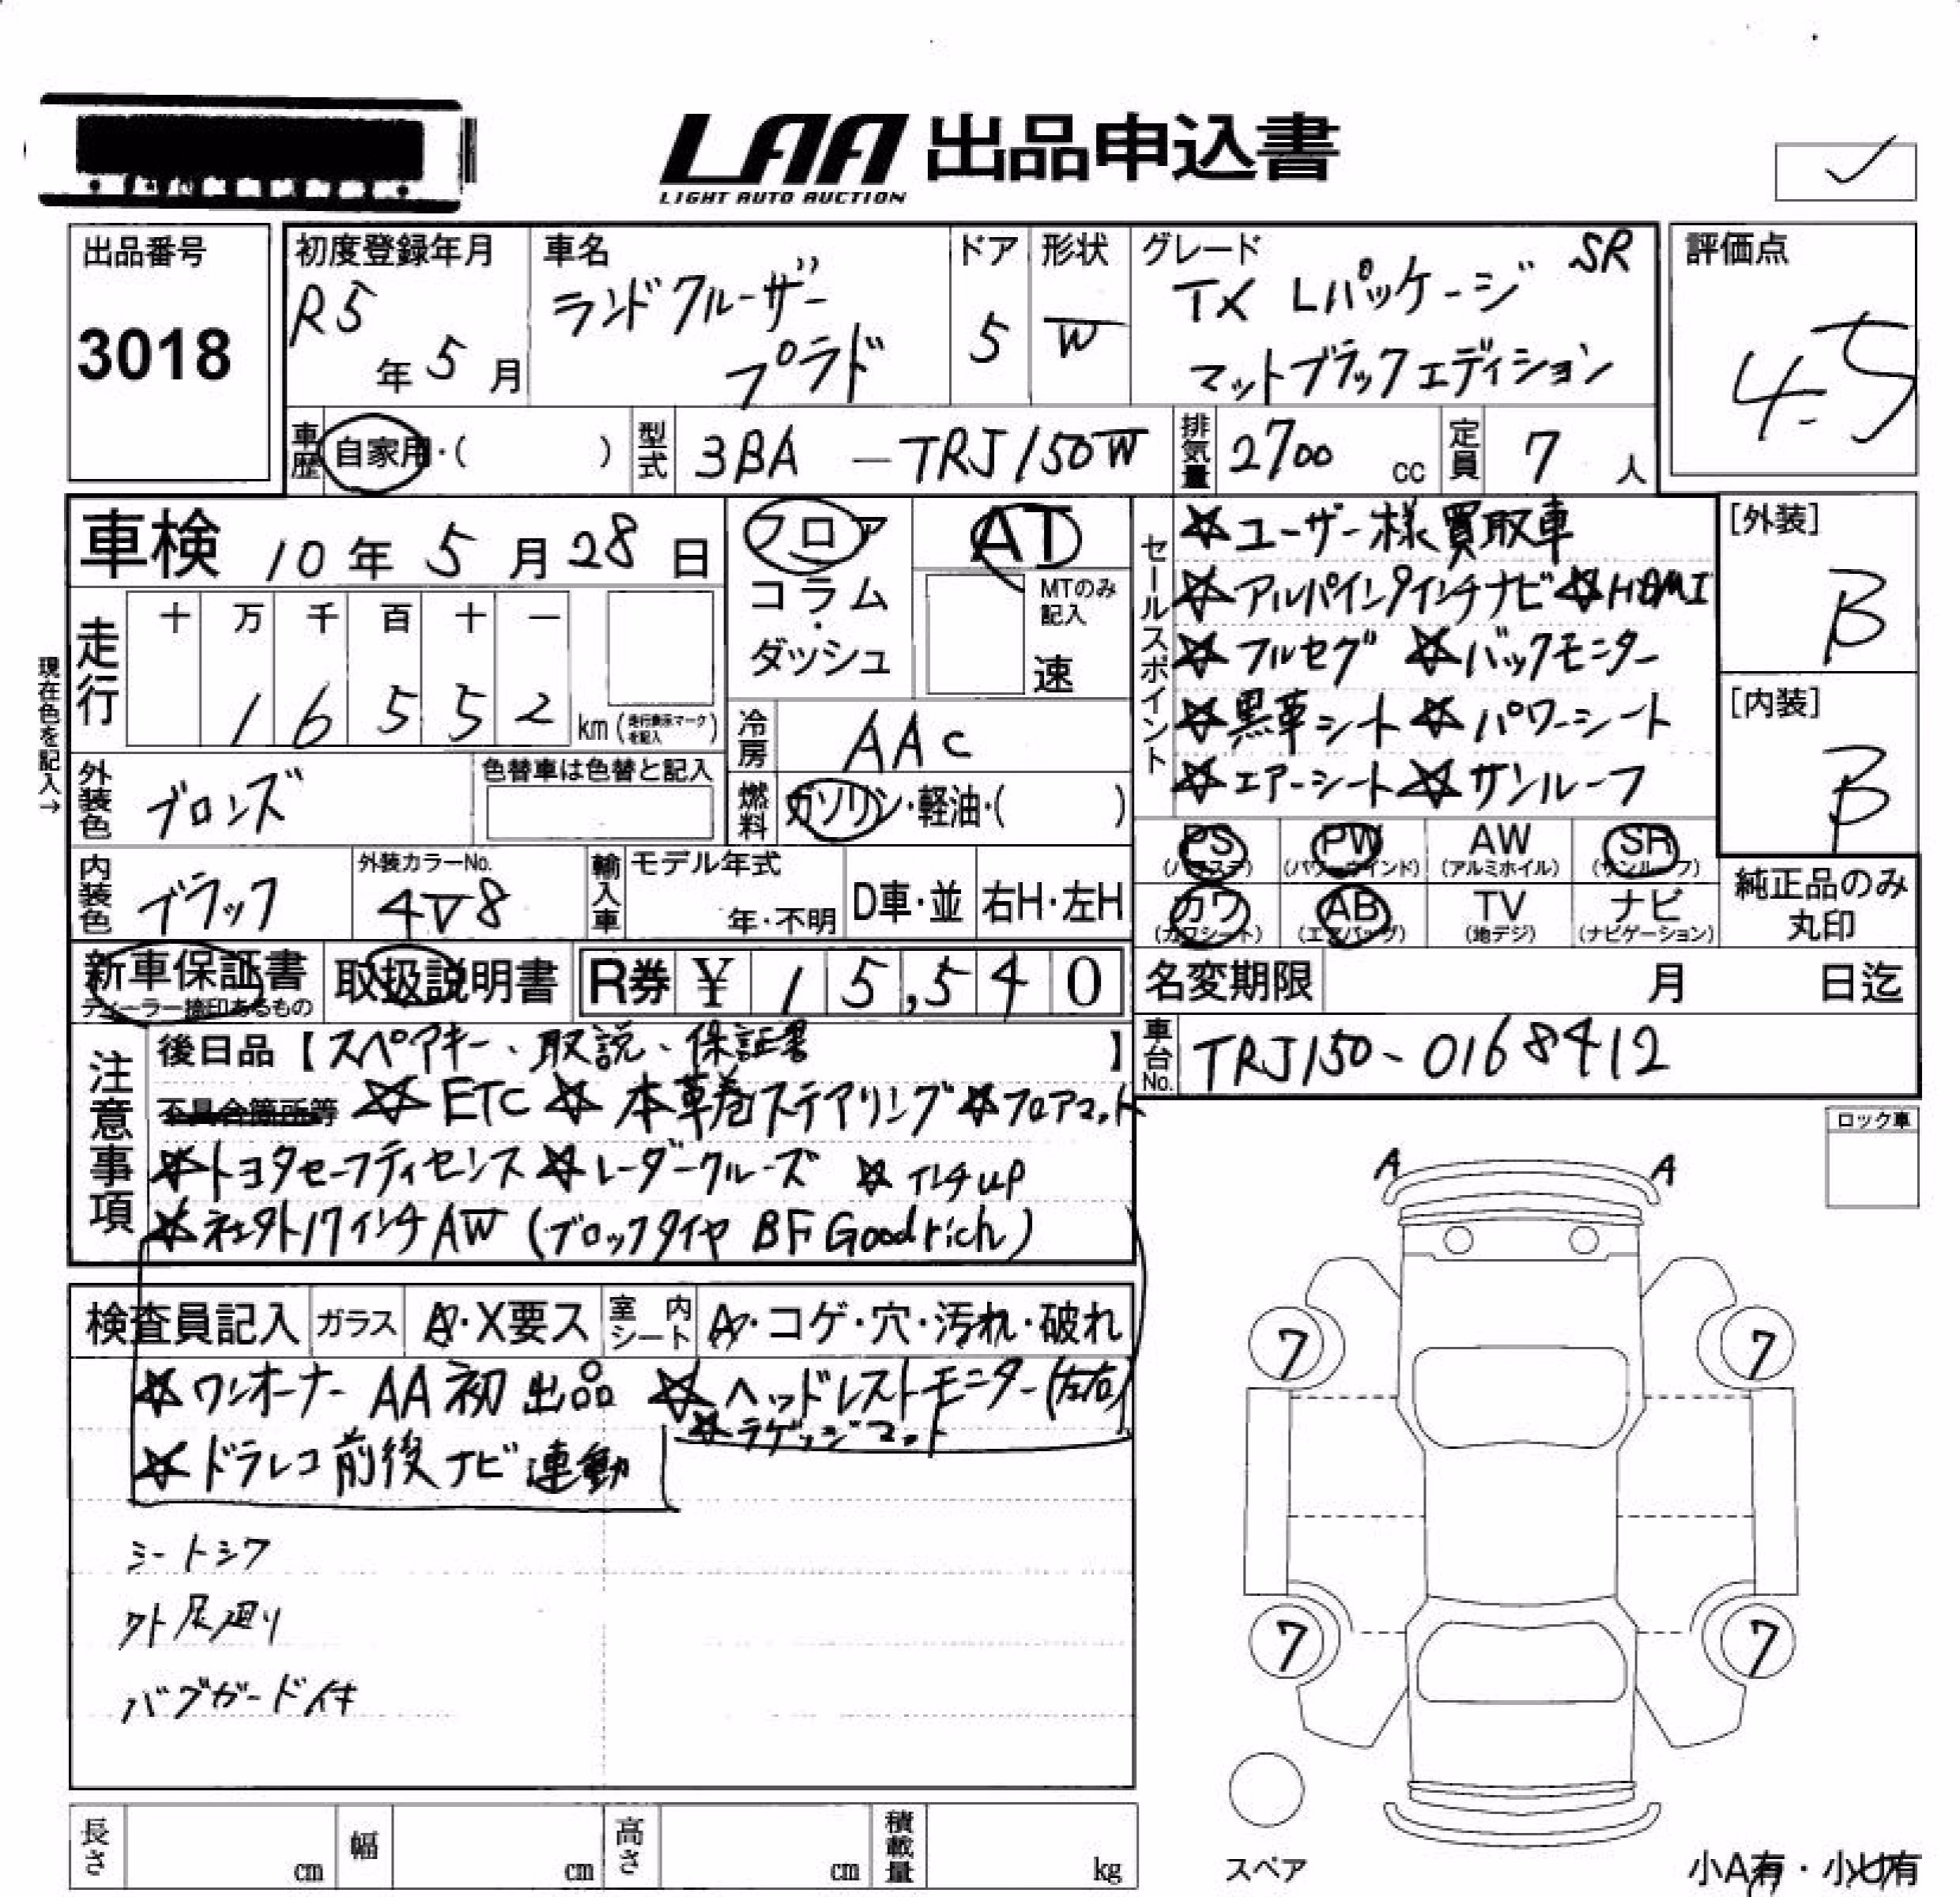 LAA 出品申込書
LIGHT AUTO AUCTION
✓
出品番号
3018
初度登録年月
R5年5月
車名
ランドクルーザー
プラド
ドア
5
形状
W
グレード SR
TX Lパッケージ
マットブラックエディション
評価点
4.5
車歴 自家用・( )
型式 3BA - TRJ150W
排気量 2700 cc
定員 7 人
車検 10年5月28日
フロア
コラム
・
ダッシュ
AT
MTのみ
記入
速
現在色を記入→
走行
十 万 千 百 十 一
1 6 5 5 2 km (走行表示マークを記入)
冷房 AAC
外装色 ブロンズ
色替車は色替と記入
燃料 ガソリン・軽油・( )
内装色 ブラック
外装カラーNo.
4V8
輸入車
モデル年式
年・不明
D車・並
右H・左H
セールスポイント
☆ユーザー様買取車
☆HDMI
☆フルセグ ☆バックモニター
☆黒革シート ☆パワーシート
☆エアーシート ☆サンルーフ
[外装]
B
[内装]
B
PS (パワステ)
PW (パワーウインド)
AW (アルミホイル)
SR (サンルーフ)
カワ (カワシート)
AB (エアバッグ)
TV (地デジ)
ナビ (ナビゲーション)
純正品のみ
丸印
新車保証書
ディーラー捺印あるもの
取扱説明書
R券 ¥ 15,540
名変期限 月 日迄
車台No. TRJ150-0168412
注意事項
後日品【スペアキー、取説、保証書】
不具合箇所等 ☆ETC ☆本革巻ステアリング ☆フロアマット
☆トヨタセーフティセンス ☆レーダークルーズ ☆インチup
☆社外17インチAW (ブロックタイヤ BF Goodrich)
検査員記入
ガラス A・X要ス
室内シート A・コゲ・穴・汚れ・破れ
☆ワンオーナー AA初出品 ☆ヘッドレストモニター(左右)
☆ラゲッジマット
☆ドラレコ前後ナビ連動
シートシワ
外足廻り
バグガード付
ロック車
A A
7 7
7 7
スペア
小A有・小U有
長さ cm
幅 cm
高さ cm
積載量 kg